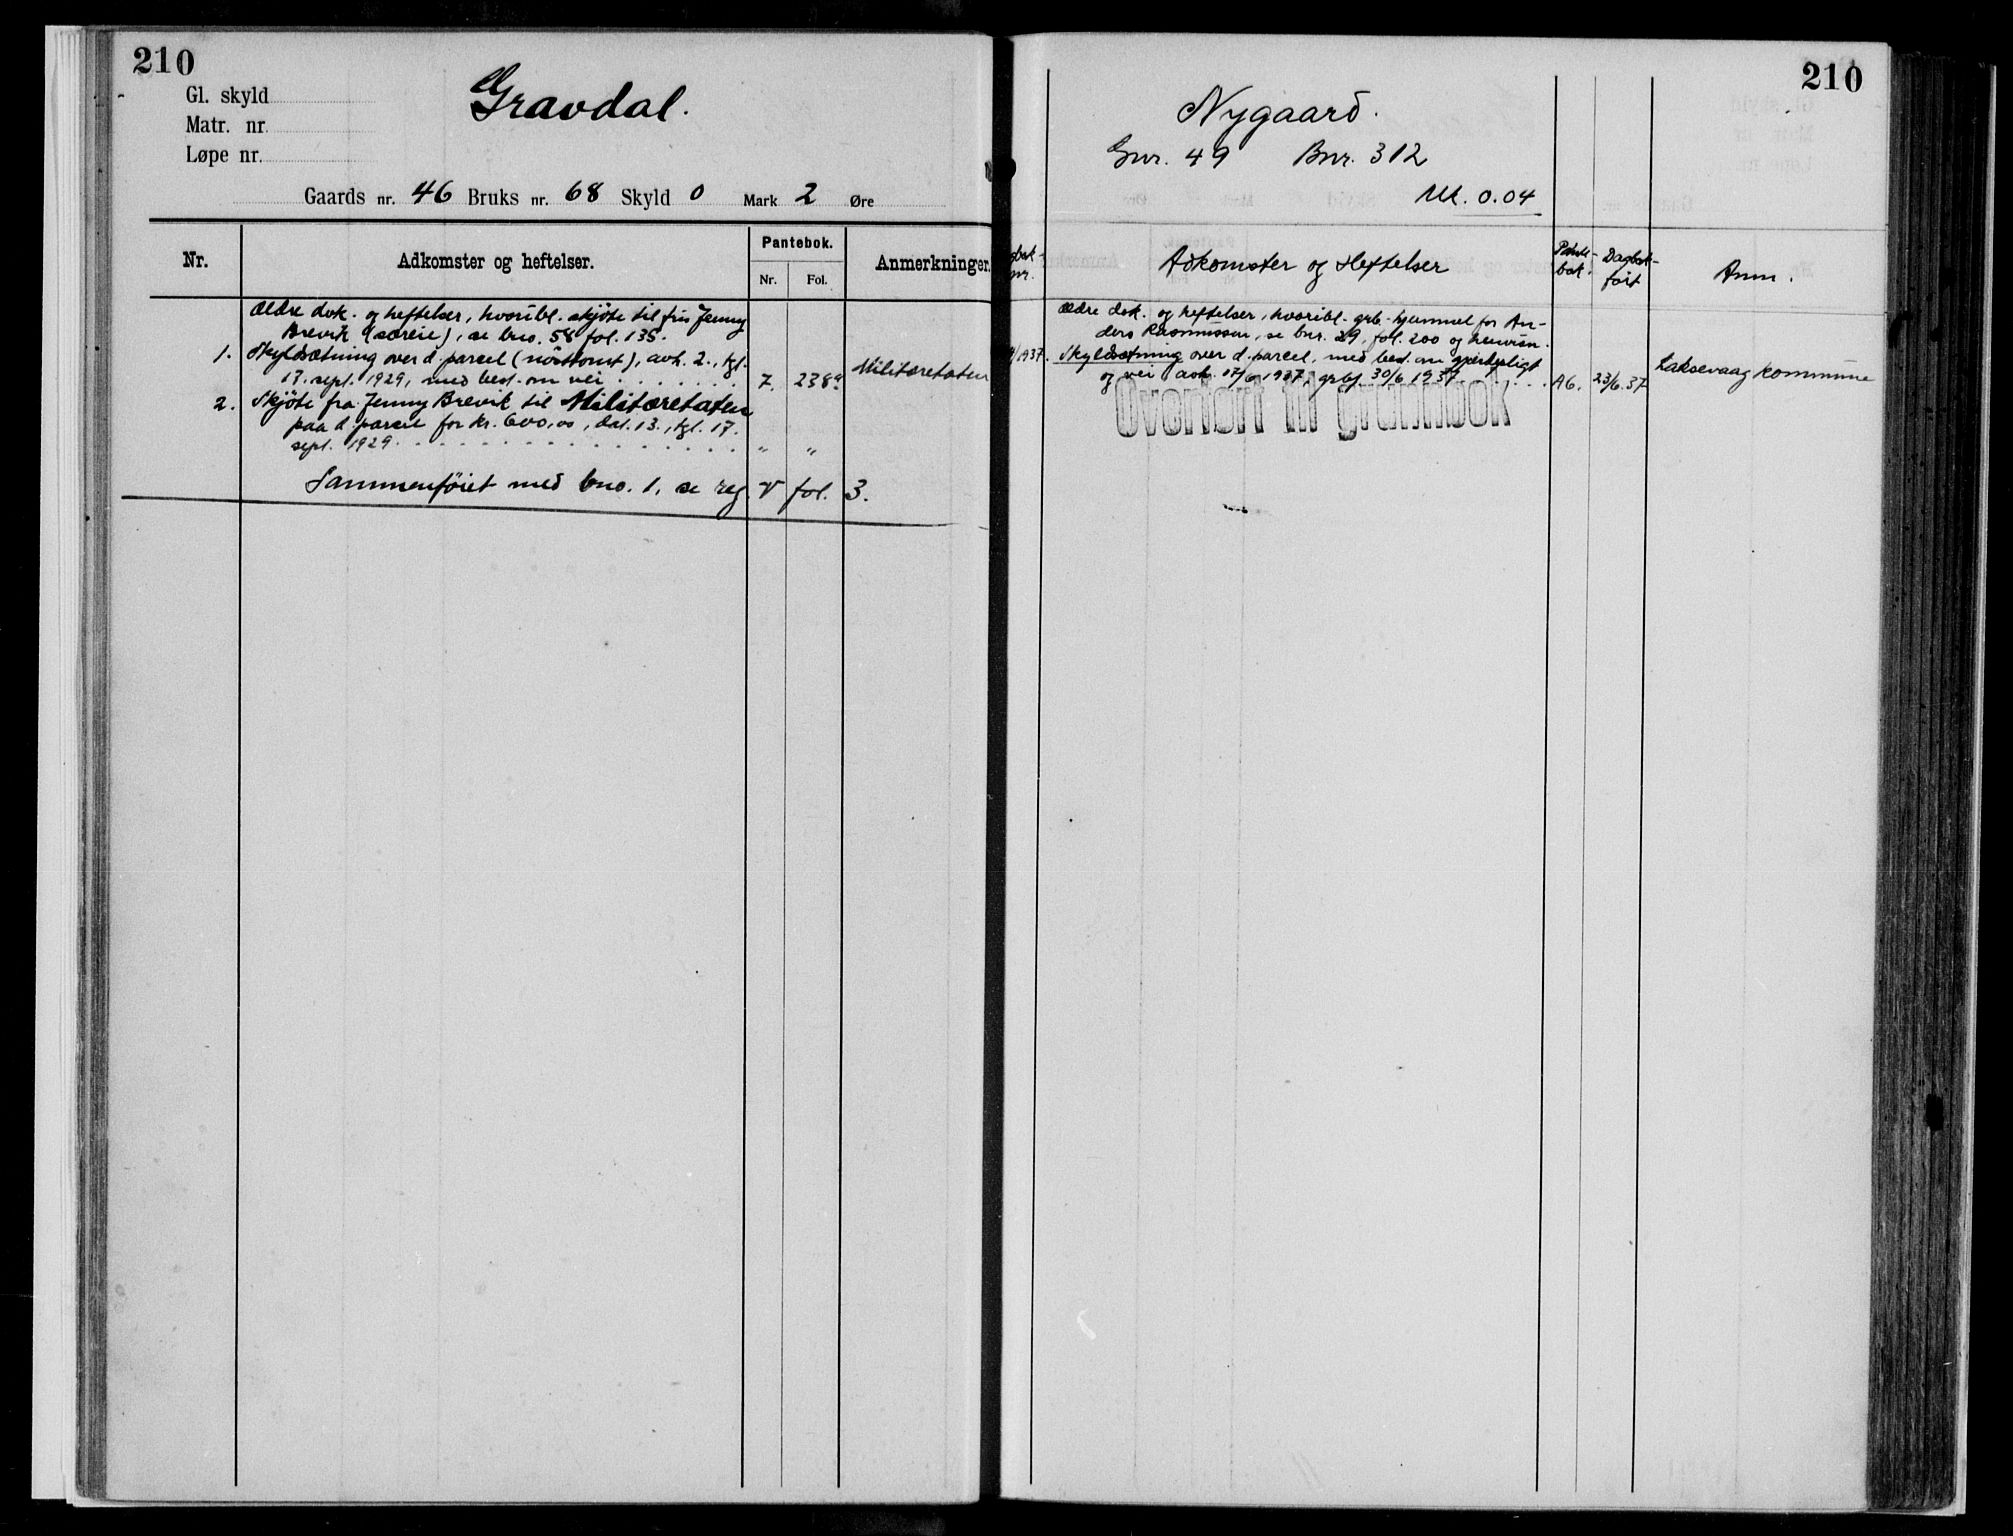 210
Gl. skyld
Matr. nr.
Løpe nr.
Gravdal.
Gaards nr. 46 Bruks nr. 68 Skyld 0 Mark 2 Øre
Nr. Adkomster og heftelser. Pantebok. Anmerkninger.
Nr. Fol.
Ældre dok. og heftelser, hvoribl. skjøte til fru Jenny
Brevik (særeie), se bno. 58 fol. 135.
1. Skyldsætning over d. parcel (nösttomt), avh. 2., tgl.
17. sept. 1929, med best. om vei . . . . . . . 7. 238a Militæretaten
2. Skjöte fra Jenny Brevik til Militæretaten
paa d. parcel for kr. 600,00, dat. 13., tgl. 17.
sept. 1929 . . . . . . . . . . . . . . . . . . " "
Sammenföiet med bno. 1, se reg. V fol. 3.
210
Nygaard.
Gnr. 49 Bnr. 312
Mk. 0.04
Adkomster og Heftelser Dagbok-
ført Anm.
Ældre dok. og heftelser, hvoribl. grb-hjemmel for An-
ders Rasmussen, se bnr. 29, fol. 200 og henvisn.
1937. Skyldsetning over d. parcel, med best. om gjerdepligt
og vei avh. 17/6 1937, grbf. 30/6 1937 . . . . A6. 23/6.37 Laksevaag kommune
Overført til grunnbok